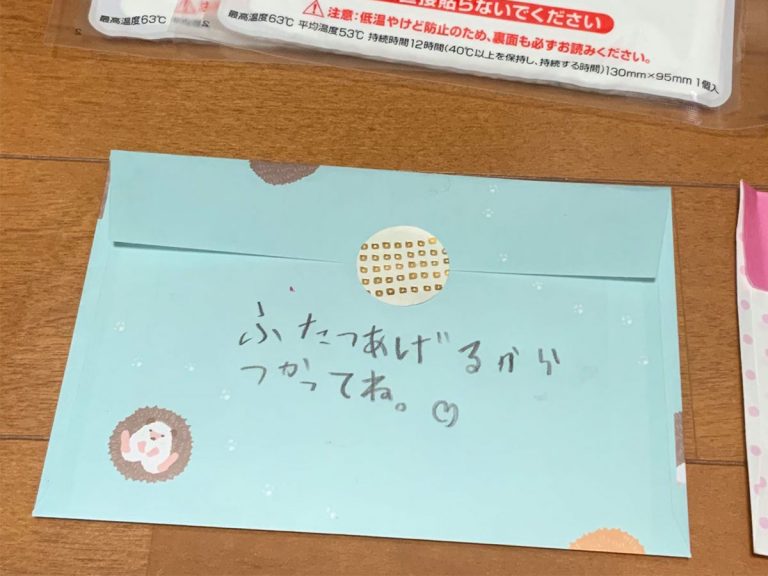 直接貼らないでください
⚠注意:低温やけど防止のため、裏面も必ずお読みください。
最高温度63℃ 平均温度53℃ 持続時間12時間(40℃以上を保持し、持続する時間)130mm×95mm 1個入
最高温度63℃
ふたつあげるから
つかってね。♡